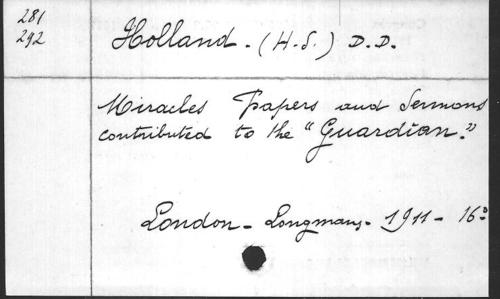 281
292
Holland. (H.S.) D.D.
Miracles Papers and Sermons
contributed to the "Guardian."
London - Longmans - 1911 - 16º